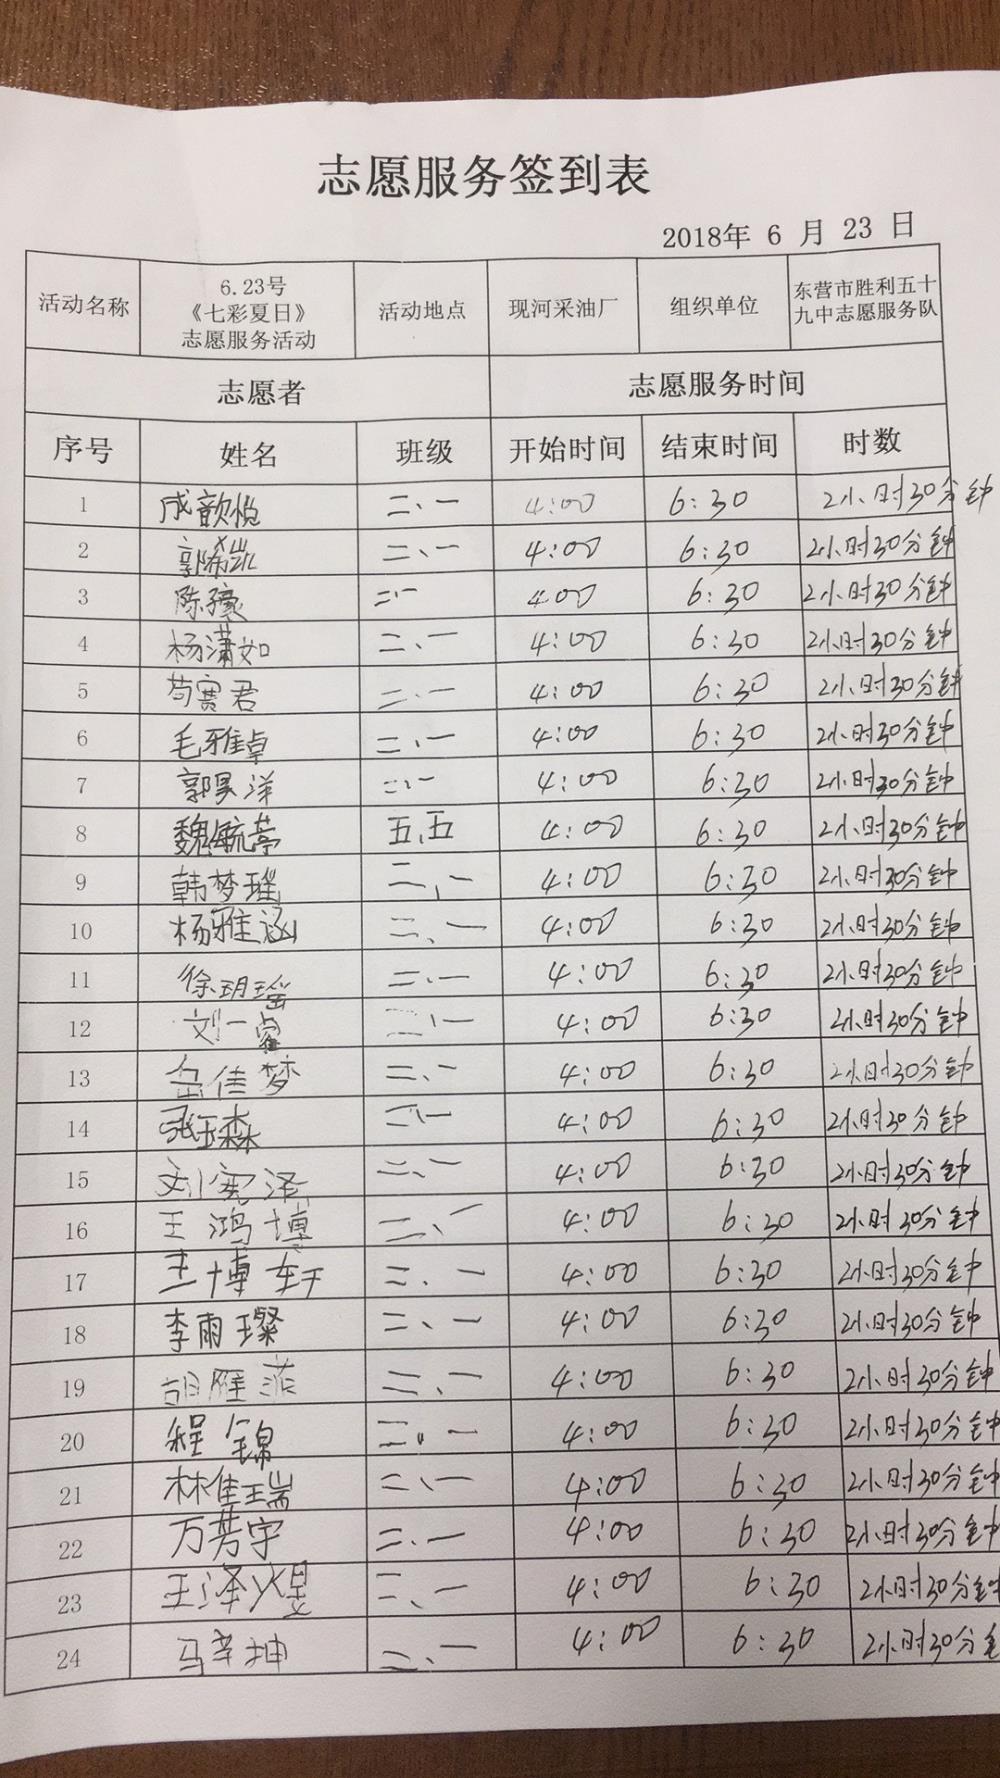 志愿服务签到表
2018年 6 月 23 日
活动名称 6.23号《七彩夏日》志愿服务活动 活动地点 现河采油厂 组织单位 东营市胜利五十九中志愿服务队
志愿者 志愿服务时间
序号 姓名 班级 开始时间 结束时间 时数
1 成歆悦 二、一 4:00 6:30 2小时30分钟
2 郭希凯 二、一 4:00 6:30 2小时30分钟
3 陈豪 二、一 4:00 6:30 2小时30分钟
4 杨潇如 二、一 4:00 6:30 2小时30分钟
5 苟赛君 二、一 4:00 6:30 2小时30分钟
6 毛雅卓 二、一 4:00 6:30 2小时30分钟
7 郭昊洋 二、一 4:00 6:30 2小时30分钟
8 魏毓葶 五、五 4:00 6:30 2小时30分钟
9 韩梦瑶 二、一 4:00 6:30 2小时30分钟
10 杨雅涵 二、一 4:00 6:30 2小时30分钟
11 徐玥瑶 二、一 4:00 6:30 2小时30分钟
12 刘一睿 二、一 4:00 6:30 2小时30分钟
13 岳佳梦 二、一 4:00 6:30 2小时30分钟
14 张珏森 二、一 4:00 6:30 2小时30分钟
15 刘宪泽 二、一 4:00 6:30 2小时30分钟
16 王鸿博 二、一 4:00 6:30 2小时30分钟
17 王博轩 二、一 4:00 6:30 2小时30分钟
18 李雨璨 二、一 4:00 6:30 2小时30分钟
19 胡雁菲 二、一 4:00 6:30 2小时30分钟
20 程锦 二、一 4:00 6:30 2小时30分钟
21 林佳瑞 二、一 4:00 6:30 2小时30分钟
22 万芳宇 二、一 4:00 6:30 2小时30分钟
23 王泽煜 二、一 4:00 6:30 2小时30分钟
24 马幸坤 二、一 4:00 6:30 2小时30分